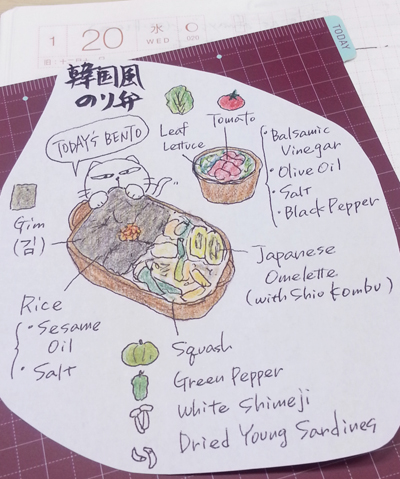 1
20
水
WED
020
TODAY
韓国風
のり弁
TODAY'S BENTO
Leaf
Lettuce
Tomato
・Balsamic
Vinegar
・Olive Oil
・Salt
・Black Pepper
Gim
(김)
Japanese
Omelette
(with Shio Kombu)
Rice
・Sesame
Oil
・Salt
Squash
Green Pepper
White Shimeji
Dried Young Sardines